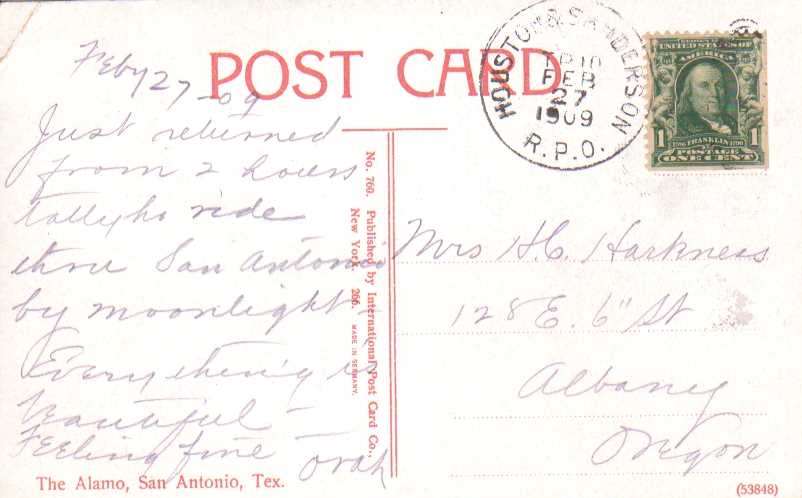 POST CARD
HOUSTON & SANDERSON
TR 10
FEB
27
1909
R.P.O.
UNITED STATES OF
AMERICA
1 FRANKLIN 1
POSTAGE
ONE CENT
Feby 27 - 09
Just returned
from 2 hours
tallyho ride
thru San Antonio
by moonlight
Everything is
beautiful -
Feeling fine -
Orah
No. 760. Published by International Post Card Co.,
New York. 266. MADE IN GERMANY.
Mrs H.C. Harkness
128 E. 6" St
Albany
Oregon
The Alamo, San Antonio, Tex.
(53848)